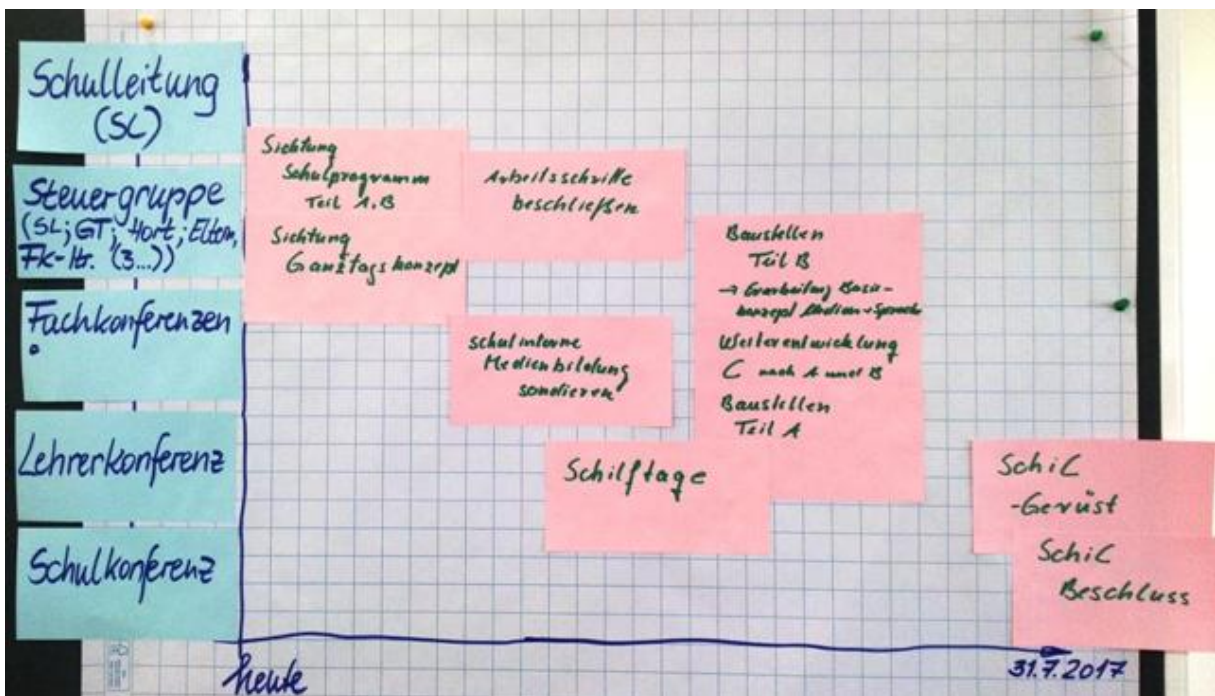 Schulleitung
(SL)
Steuergruppe
(SL; GT; Hort; Eltern,
FK-ltr. (3...))
Fachkonferenzen
Lehrerkonferenz
Schulkonferenz
Sichtung
Schulprogramm
Teil A, B
Sichtung
Ganztagskonzept
Arbeitsschritte
beschließen
schulinterne
Medienbildung
sondieren
Schilftage
Baustellen
Teil B
→ Erarbeitung Basis-
konzept Medien + Sprache
Weiterentwicklung
C nach A und B
Baustellen
Teil A
SchiC
-Gerüst
SchiC
Beschluss
heute
31.7.2017